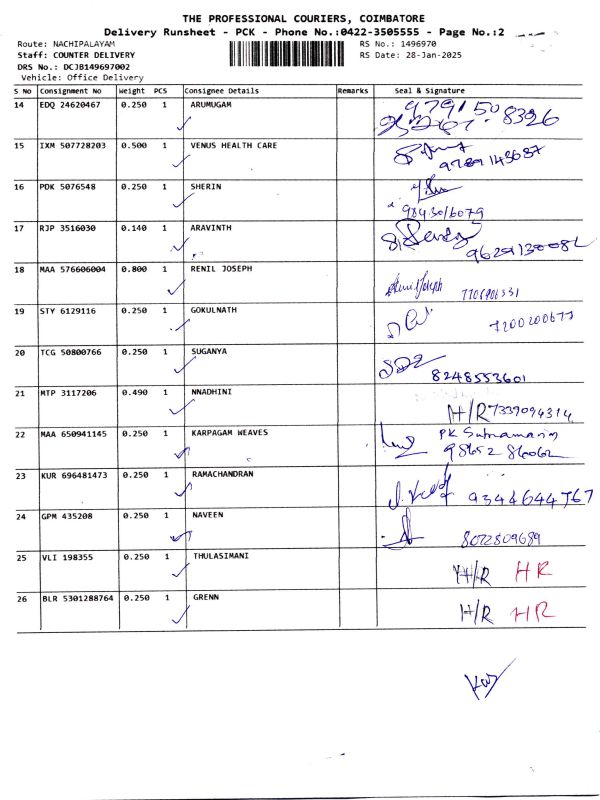 THE PROFESSIONAL COURIERS, COIMBATORE
Delivery Runsheet - PCK - Phone No.:0422-3505555 - Page No.:2
Route: NACHIPALAYAM
RS No.: 1496970
Staff: COUNTER DELIVERY
RS Date: 28-Jan-2025
DRS No.: DCJB149697002
Vehicle: Office Delivery
S No Consignment No Weight PCS Consignee Details Remarks Seal & Signature
14 EDQ 24620467 0.250 1 ARUMUGAM 9791508396
15 IXM 507728203 0.500 1 VENUS HEALTH CARE 9789143687
16 PDK 5076548 0.250 1 SHERIN 9843016079
17 RJP 3516030 0.140 1 ARAVINTH
18 MAA 576606004 0.800 1 RENIL JOSEPH
19 STY 6129116 0.250 1 GOKULNATH 7200200677
20 TCG 50800766 0.250 1 SUGANYA 8248553601
21 MTP 3117206 0.490 1 NNADHINI H/R 7339094314
22 MAA 650941145 0.250 1 KARPAGAM WEAVES PK
98652 86062
23 KUR 696481473 0.250 1 RAMACHANDRAN 9344644767
24 GPM 435208 0.250 1 NAVEEN
25 VLI 198355 0.250 1 THULASIMANI H/R HR
26 BLR 5301288764 0.250 1 GRENN H/R HR